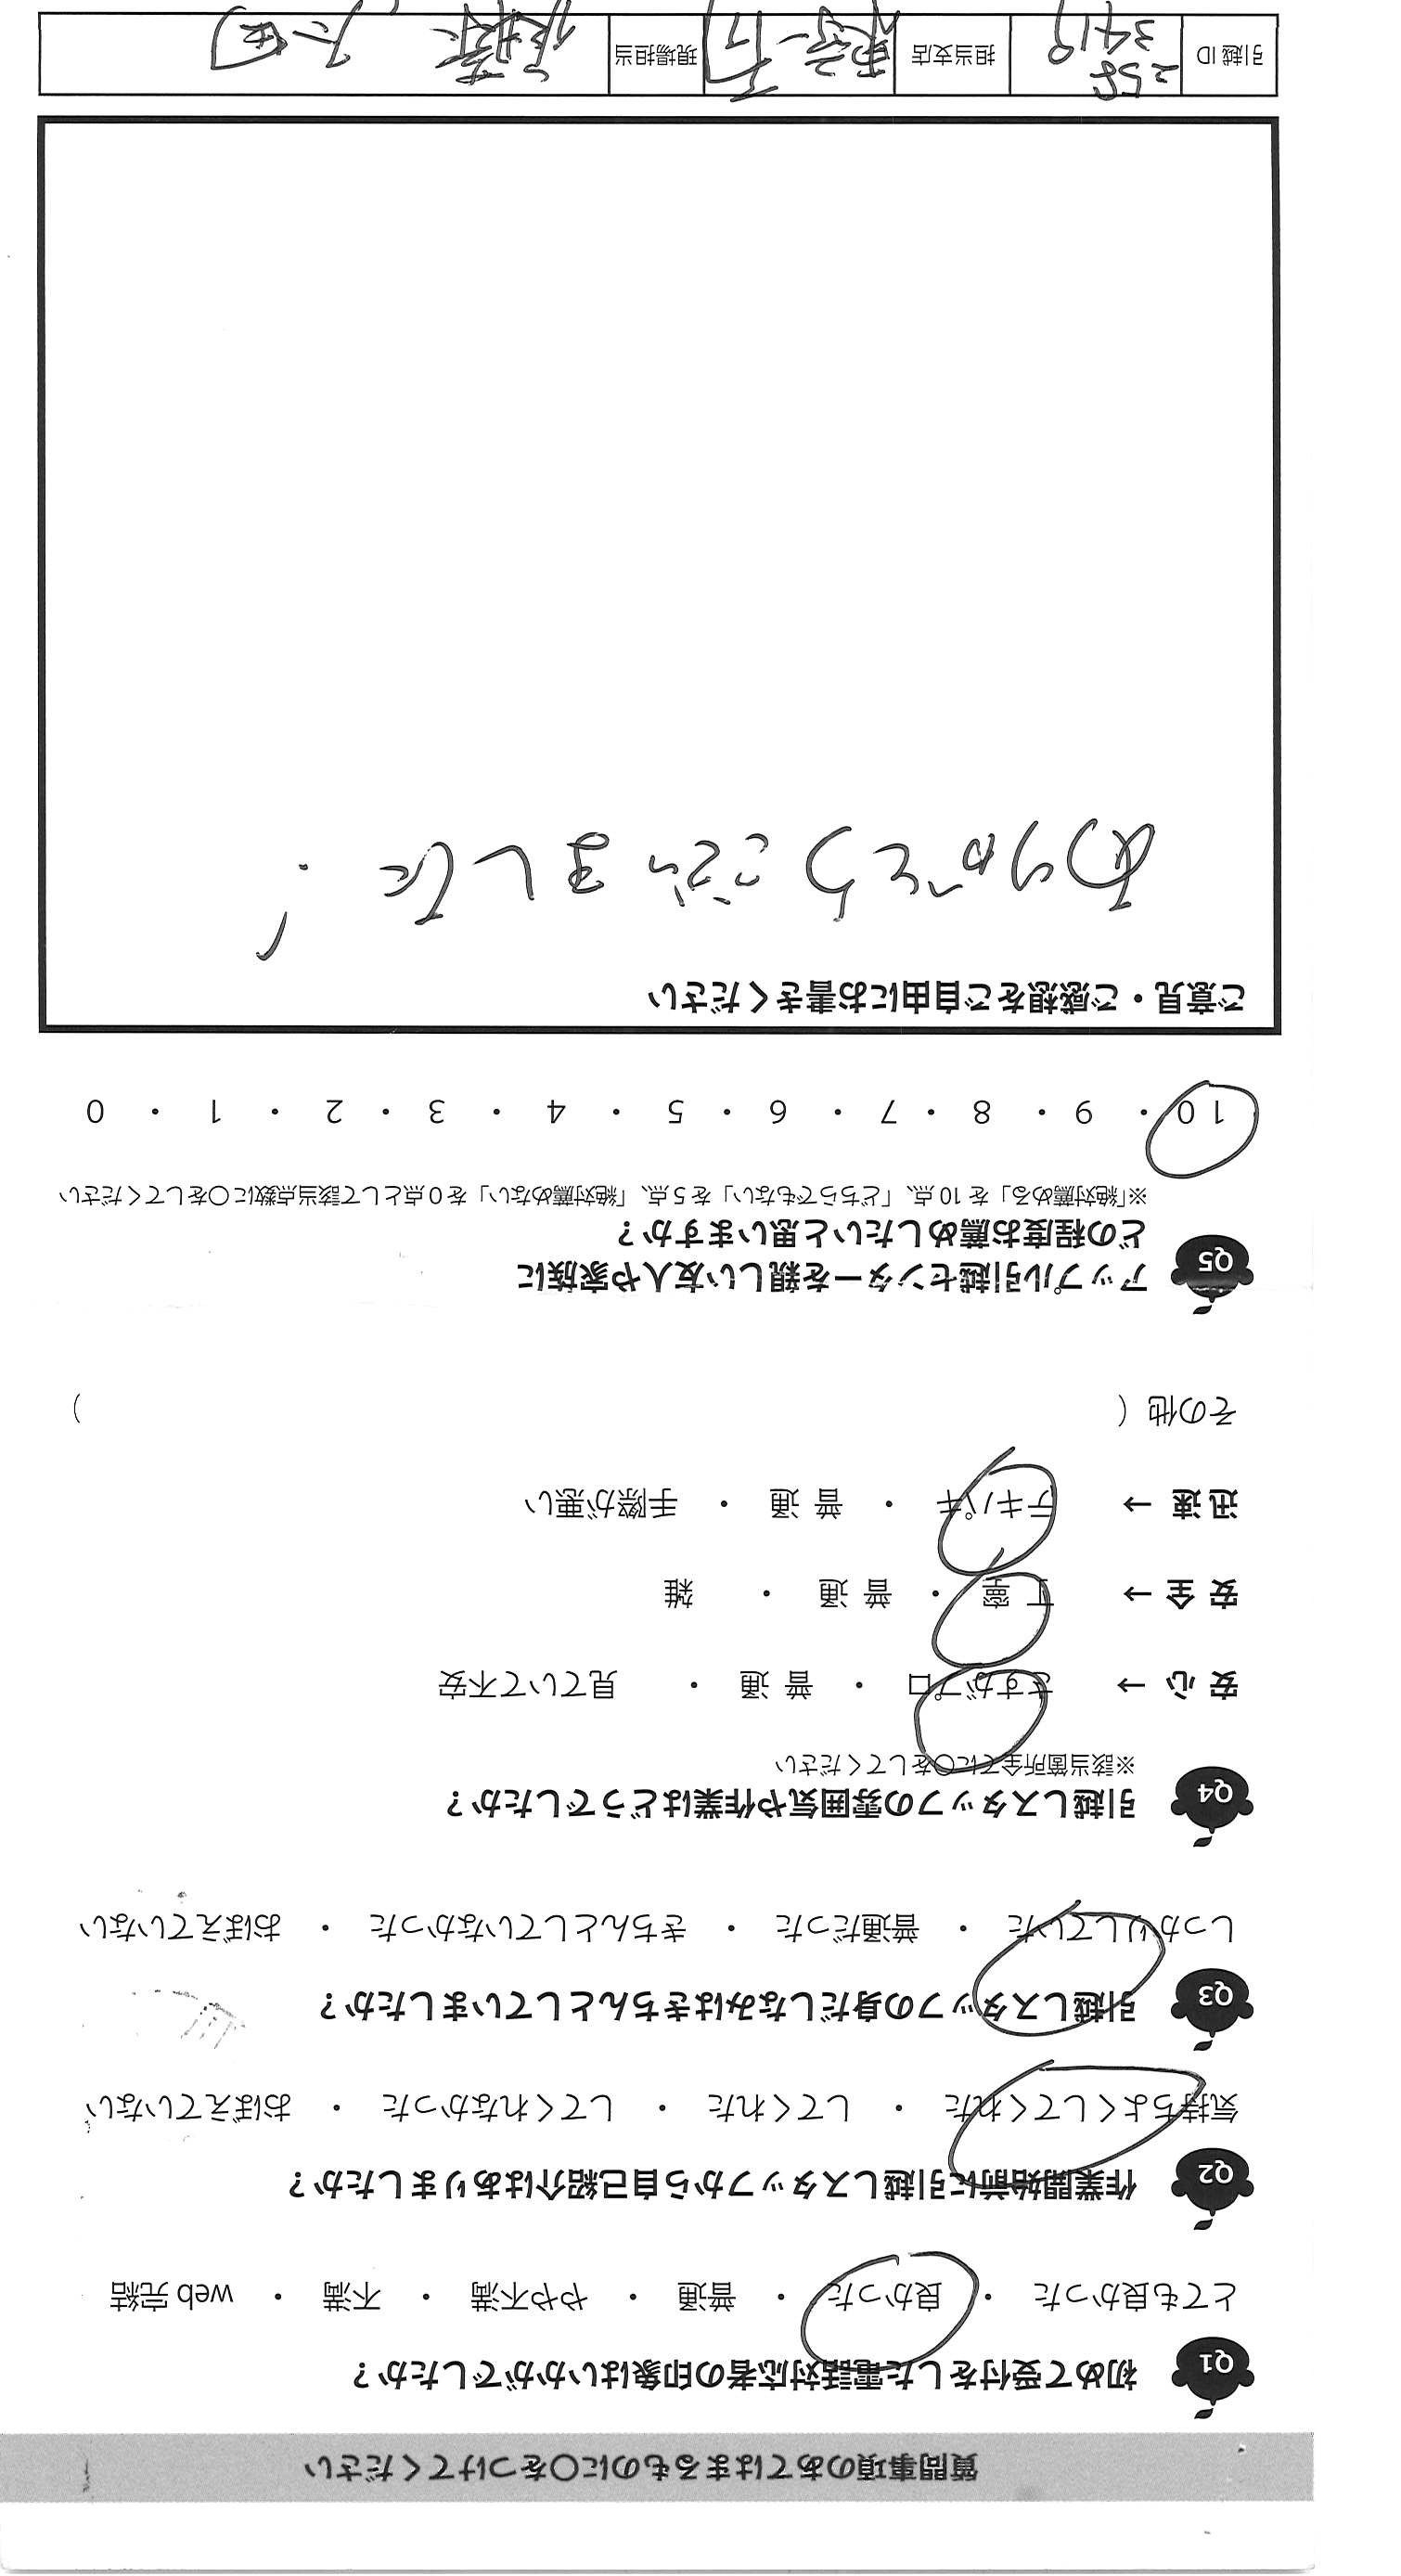 質問事項のあてはまるものに〇をつけてください
Q1 初めて受付をした電話対応者の印象はいかがでしたか？
とても良かった ・ 良かった ・ 普通 ・ やや不満 ・ 不満 ・ web 完結
Q2 作業開始前に引越しスタッフから自己紹介はありましたか？
気持ちよくしてくれた ・ してくれた ・ してくれなかった ・ おぼえていない
Q3 引越しスタッフの身だしなみはきちんとしていましたか？
しっかりしていた ・ 普通だった ・ きちんとしていなかった ・ おぼえていない
Q4 引越しスタッフの雰囲気や作業はどうでしたか？
※該当箇所全てに〇をしてください
安心 → さすがプロ ・ 普通 ・ 見ていて不安
安全 → 丁寧 ・ 普通 ・ 雑
迅速 → テキパキ ・ 普通 ・ 手際が悪い
その他 （ ）
Q5 アップル引越センターを親しい友人や家族に
どの程度お薦めしたいと思いますか？
※「絶対薦める」を 10 点、「どちらでもない」を 5 点、「絶対薦めない」を 0 点として該当点数に〇をしてください
10 ・ 9 ・ 8 ・ 7 ・ 6 ・ 5 ・ 4 ・ 3 ・ 2 ・ 1 ・ 0
ご意見・ご感想をご自由にお書きください
ありがとうございました！
引越 ID 258 3419 担当支店 現場担当